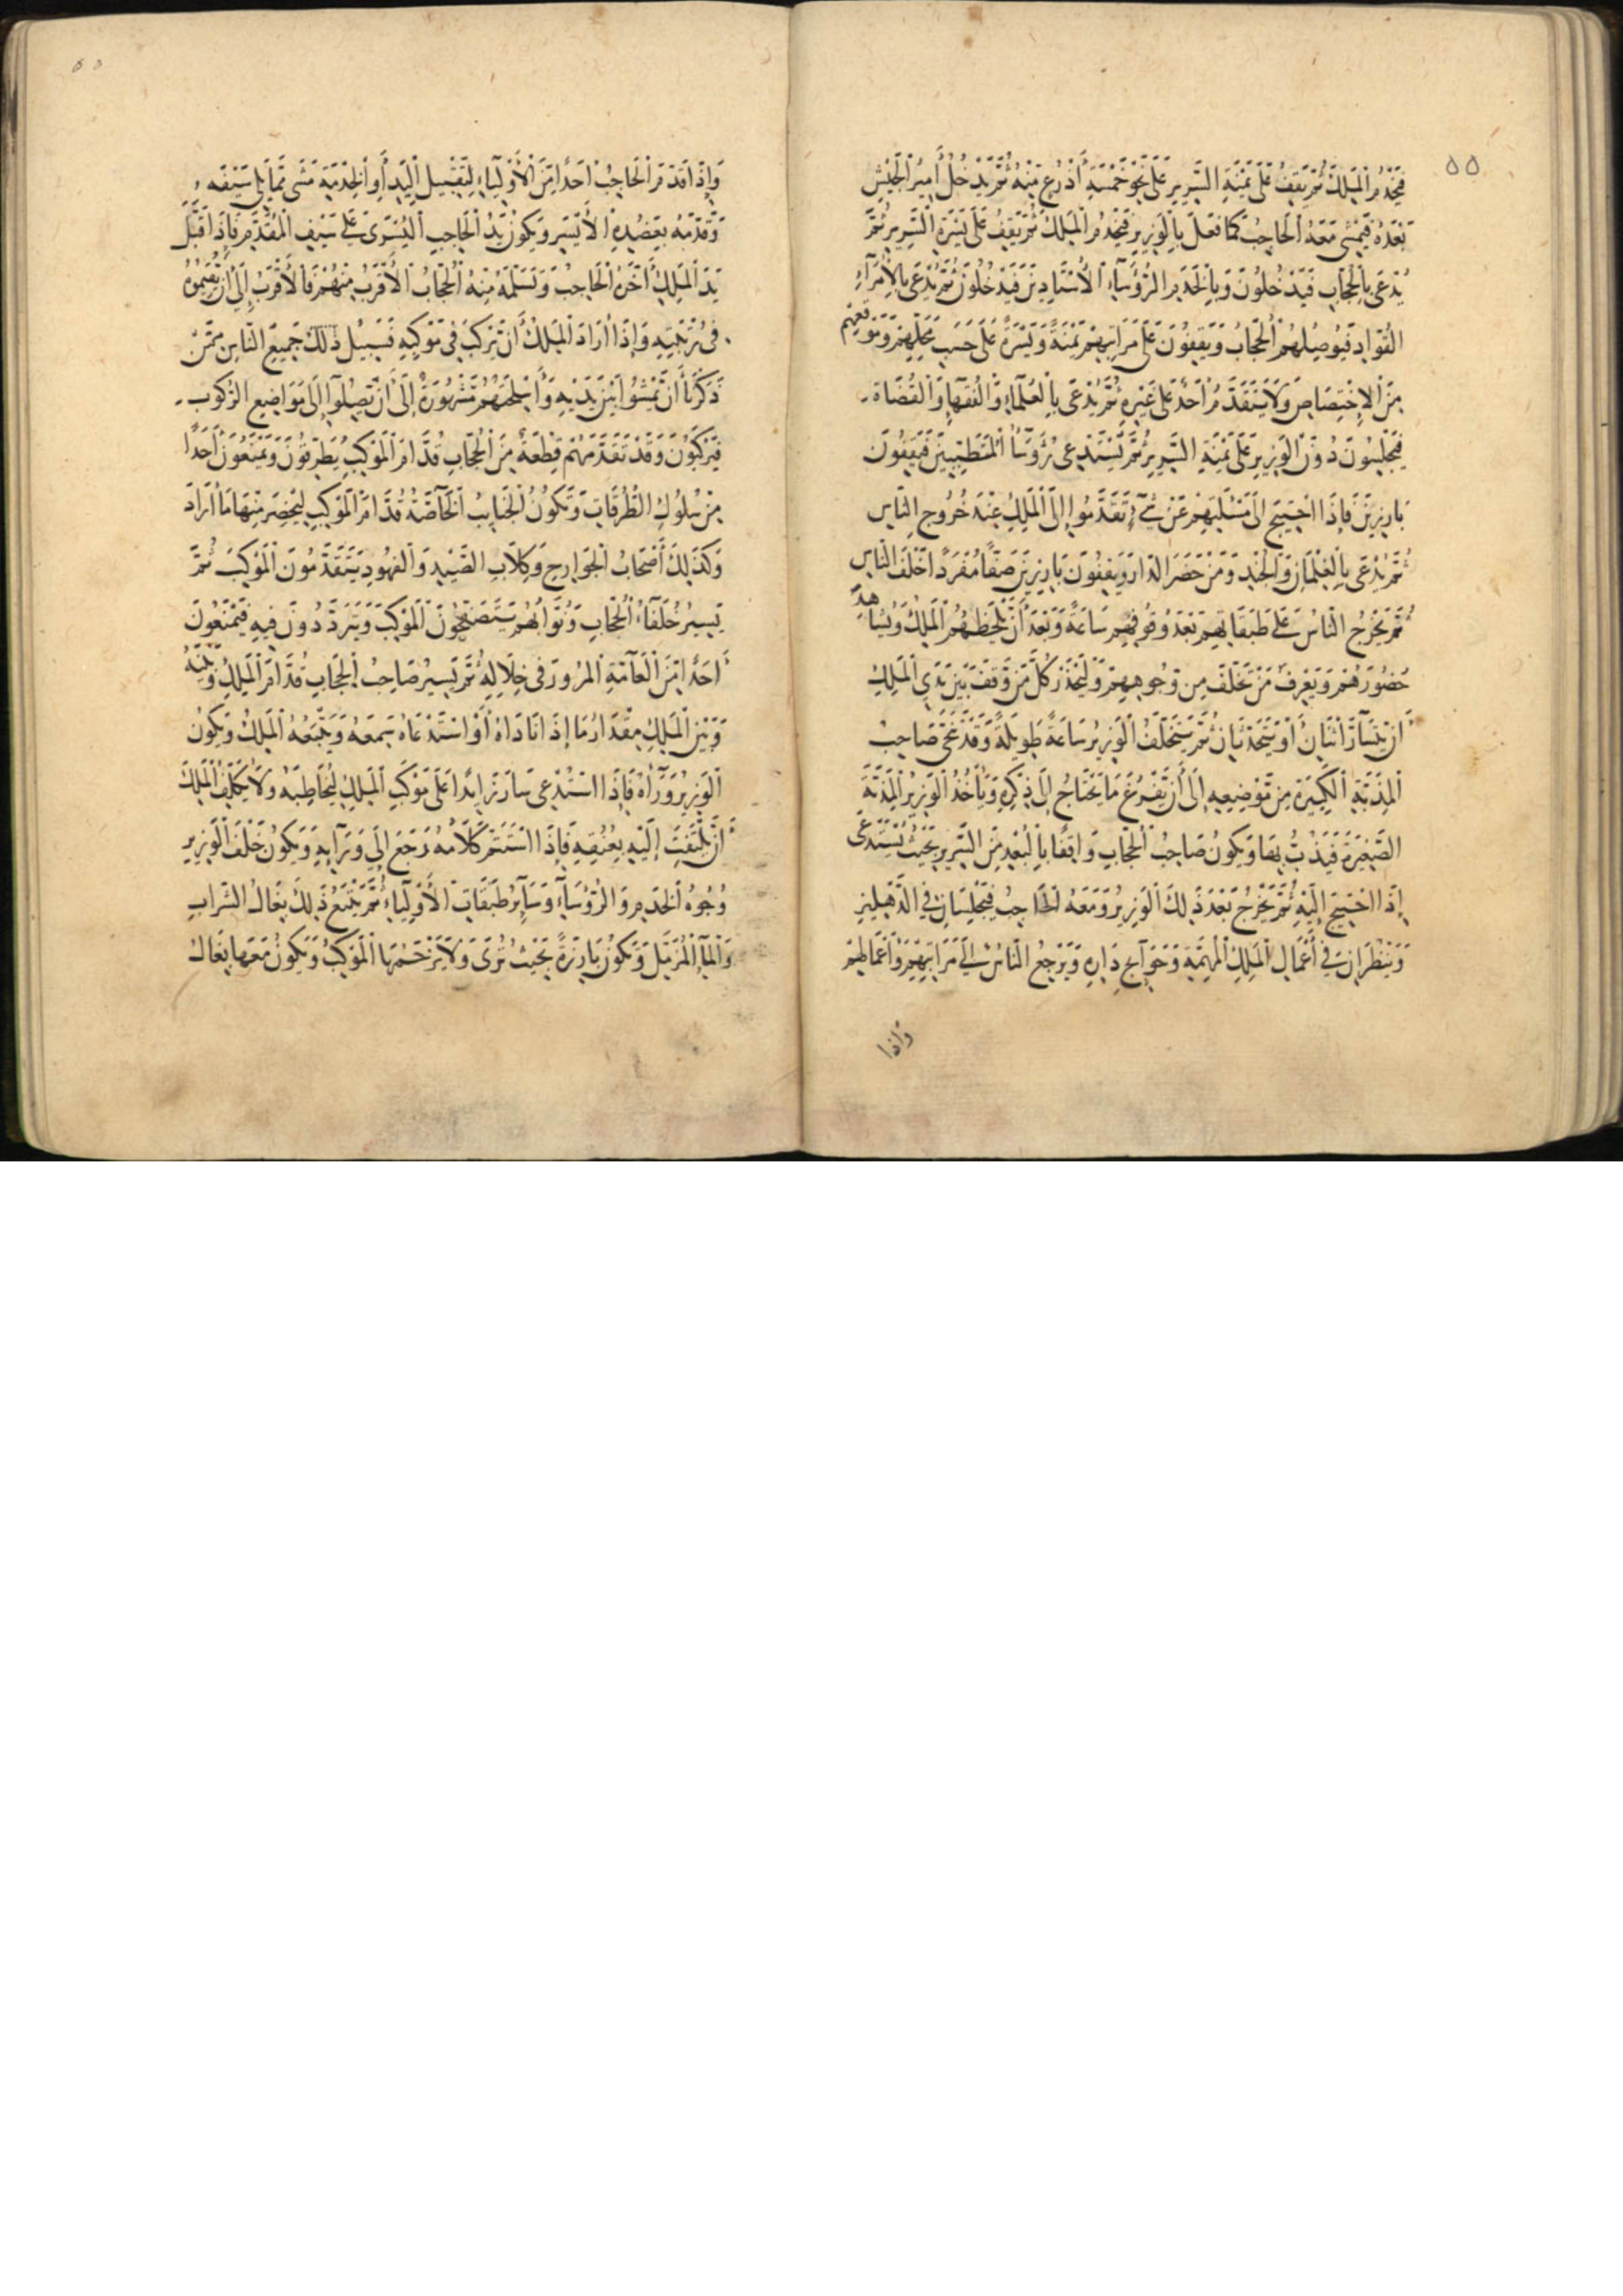 ٥٥
فَيَخْدُمُ الْمَلِكَ ثُمَّ يَقِفُ عَلَى يَمْنَةِ السَّرِيرِ عَلَى نَحْوِ خَمْسَةِ أَذْرُعٍ مِنْهُ ثُمَّ يَدْخُلُ أَمِيرُ الْجَيْشِ
بَعْدَهُ فَيَمْشِي مَعَهُ الْحَاجِبُ كَمَا فَعَلَ بِالْوَزِيرِ فَيَخْدُمُ الْمَلِكَ ثُمَّ يَقِفُ عَلَى يَسْرَةِ السَّرِيرِ ثُمَّ
يُدْعَى بِالْحُجَّابِ فَيَدْخُلُونَ وَبِالْخَدَمِ الرُّؤَسَاءِ الْأُسْتَادِينَ فَيَدْخُلُونَ ثُمَّ يُدْعَى بِالْأُمَرَاءِ
الْقُوَّادِ فَيُوصِلُهُمُ الْحُجَّابُ وَيَقِفُونَ عَلَى مَرَاتِبِهِمْ يَمْنَةً وَيَسْرَةً عَلَى حَسَبِ مَحَلِّهِمْ وَمَوْقِعِهِمْ
مِنَ الْاِخْتِصَاصِ وَلَا يَتَقَدَّمُ أَحَدٌ عَلَى غَيْرِهِ ثُمَّ يُدْعَى بِالْعُلَمَاءِ وَالْفُقَهَاءِ وَالْقُضَاةِ
فَيَجْلِسُونَ دُونَ الْوَزِيرِ عَلَى يَمْنَةِ السَّرِيرِ ثُمَّ يُسْتَدْعَى رُؤَسَاءُ الْمُتَطَبِّبِينَ فَيَقِفُونَ
بَارِزِينَ فَإِذَا احْتِيجَ إِلَى مَسْئَلَتِهِمْ عَنْ شَيْءٍ تَقَدَّمُوا إِلَى الْمَلِكِ عِنْدَ خُرُوجِ النَّاسِ
ثُمَّ يُدْعَى بِالْغِلْمَانِ وَالْجُنْدِ وَمَنْ حَضَرَ الدَّارَ وَيَقِفُونَ بَارِزِينَ صَفًّا مُفْرَدًا خَلْفَ النَّاسِ
ثُمَّ يَخْرُجُ النَّاسُ عَلَى طَبَقَاتِهِمْ بَعْدَ وُقُوفِهِمْ سَاعَةً وَبَعْدَ أَنْ يَلْحَظَهُمُ الْمَلِكُ وَيُشَاهِدَ
حُضُورَهُمْ وَيَعْرِفَ مَنْ تَخَلَّفَ مِنْ وُجُوهِهِمْ وَلْيَحْذَرْ كُلُّ مَنْ وَقَفَ بَيْنَ يَدَيِ الْمَلِكِ
أَنْ يَتَسَارَّ اثْنَانِ أَوْ يَتَحَدَّثَانِ ثُمَّ يَتَخَلَّفُ الْوَزِيرُ سَاعَةً طَوِيلَةً وَقَدْ نُحِّيَ صَاحِبُ
الْمِذَبَّةِ الْكَبِيرَةِ مِنْ مَوْضِعِهِ إِلَى أَنْ يَفْرُغَ مَا يَحْتَاجُ إِلَى ذِكْرِهِ وَيَأْخُذُ الْوَزِيرُ الْمِذَبَّةَ
الصَّغِيرَةَ فَيَذُبُّ بِهَا وَيَكُونُ صَاحِبُ الْحُجَّابِ وَاقِفًا بِالْبُعْدِ مِنَ السَّرِيرِ بِحَيْثُ يُسْتَدْعَى
إِذَا احْتِيجَ إِلَيْهِ ثُمَّ يَخْرُجُ بَعْدَ ذَلِكَ الْوَزِيرُ وَمَعَهُ الْحَاجِبُ فَيَجْلِسَانِ فِي الدِّهْلِيزِ
وَيَنْظُرَانِ فِي أَعْمَالِ الْمَلِكِ الْمُهِمَّةِ وَحَوَائِجِ دَارِهِ وَيَرْجِعُ النَّاسُ إِلَى مَرَاتِبِهِمْ وَأَعْمَالِهِمْ
وَإِذَا
وَإِذَا قَدَّمَ الْحَاجِبُ أَحَدًا مِنَ الْأَوْلِيَاءِ لِتَقْبِيلِ الْيَدِ أَوِ الْخِدْمَةِ مَشَى مِمَّا يَلِي سَيْفَهُ
وَقَدَّمَهُ بِعَضُدِهِ الْأَيْسَرِ وَيَكُونُ يَدُ الْحَاجِبِ الْيُسْرَى عَلَى سَيْفِ الْمُقَدَّمِ فَإِذَا قَبَّلَ
يَدَ الْمَلِكِ أَخَّرَهُ الْحَاجِبُ وَتَسَلَّمَهُ مِنْهُ الْحُجَّابُ الْأَقْرَبُ مِنْهُمْ فَالْأَقْرَبُ إِلَى أَنْ يُقِيمُوهُ
فِي مَرْتَبَتِهِ وَإِذَا أَرَادَ الْمَلِكُ أَنْ يَرْكَبَ فِي مَوْكِبِهِ فَسَبِيلُ ذَلِكَ جَمِيعُ النَّاسِ مِمَّنْ
ذَكَرْنَا أَنْ يَمْشُوا بَيْنَ يَدَيْهِ وَأَسْلِحَتُهُمْ مَشْهُورَةٌ إِلَى أَنْ يَصِلُوا إِلَى مَوَاضِعِ الرُّكُوبِ
فَيَرْكَبُونَ وَقَدْ تَقَدَّمَهُمْ قِطْعَةٌ مِنَ الْحُجَّابِ قُدَّامَ الْمَوْكِبِ يُطَرِّقُونَ وَيَمْنَعُونَ أَحَدًا
مِنْ سُلُوكِ الطُّرُقَاتِ وَتَكُونُ الْجَنَائِبُ الْخَاصَّةُ قُدَّامَ الْمَوْكِبِ لِيُحْضَرَ مِنْهَا مَا أَرَادَ
وَكَذَلِكَ أَصْحَابُ الْجَوَارِحِ وَكِلَابِ الصَّيْدِ وَالْفُهُودِ يَتَقَدَّمُونَ الْمَوْكِبَ ثُمَّ
يَسِيرُ خُلَفَاءُ الْحُجَّابِ وَنُوَّابُهُمْ يَتَصَفَّحُونَ الْمَوْكِبَ وَيَتَرَدَّدُونَ فِيهِ فَيَمْنَعُونَ
أَحَدًا مِنَ الْعَامَّةِ الْمُرُورَ فِي خِلَالِهِ ثُمَّ يَسِيرُ صَاحِبُ الْحُجَّابِ قُدَّامَ الْمَلِكِ وَبَيْنَهُ
وَبَيْنَ الْمَلِكِ مِقْدَارُ مَا إِذَا نَادَاهُ أَوْ اسْتَدْعَاهُ سَمِعَهُ وَيَتْبَعُهُ الْمَلِكُ وَيَكُونُ
الْوَزِيرُ وَرَاهُ فَإِذَا اسْتُدْعِيَ سَارَ زَائِدًا عَلَى مَوْكِبِ الْمَلِكِ لِيُخَاطِبَهُ وَلَا يُكَلِّفُ الْمَلِكَ
أَنْ يَلْتَفِتَ إِلَيْهِ بِعُنُقِهِ فَإِذَا اسْتَتَمَّ كَلَامُهُ رَجَعَ إِلَى وَرَائِهِ وَيَكُونُ خَلْفَ الْوَزِيرِ
وُجُوهُ الْخَدَمِ وَالرُّؤَسَاءِ وَسَائِرُ طَبَقَاتِ الْأَوْلِيَاءِ ثُمَّ يَتْبَعُ ذَلِكَ بِغَالُ الشَّرَابِ
وَالْمَاءِ الْمُزَمَّلِ وَيَكُونُ بَارِزَةً بِحَيْثُ تُرَى وَلَا يَزْحَمُهَا الْمَوْكِبُ وَيَكُونُ مَعَهَا بِغَالُ